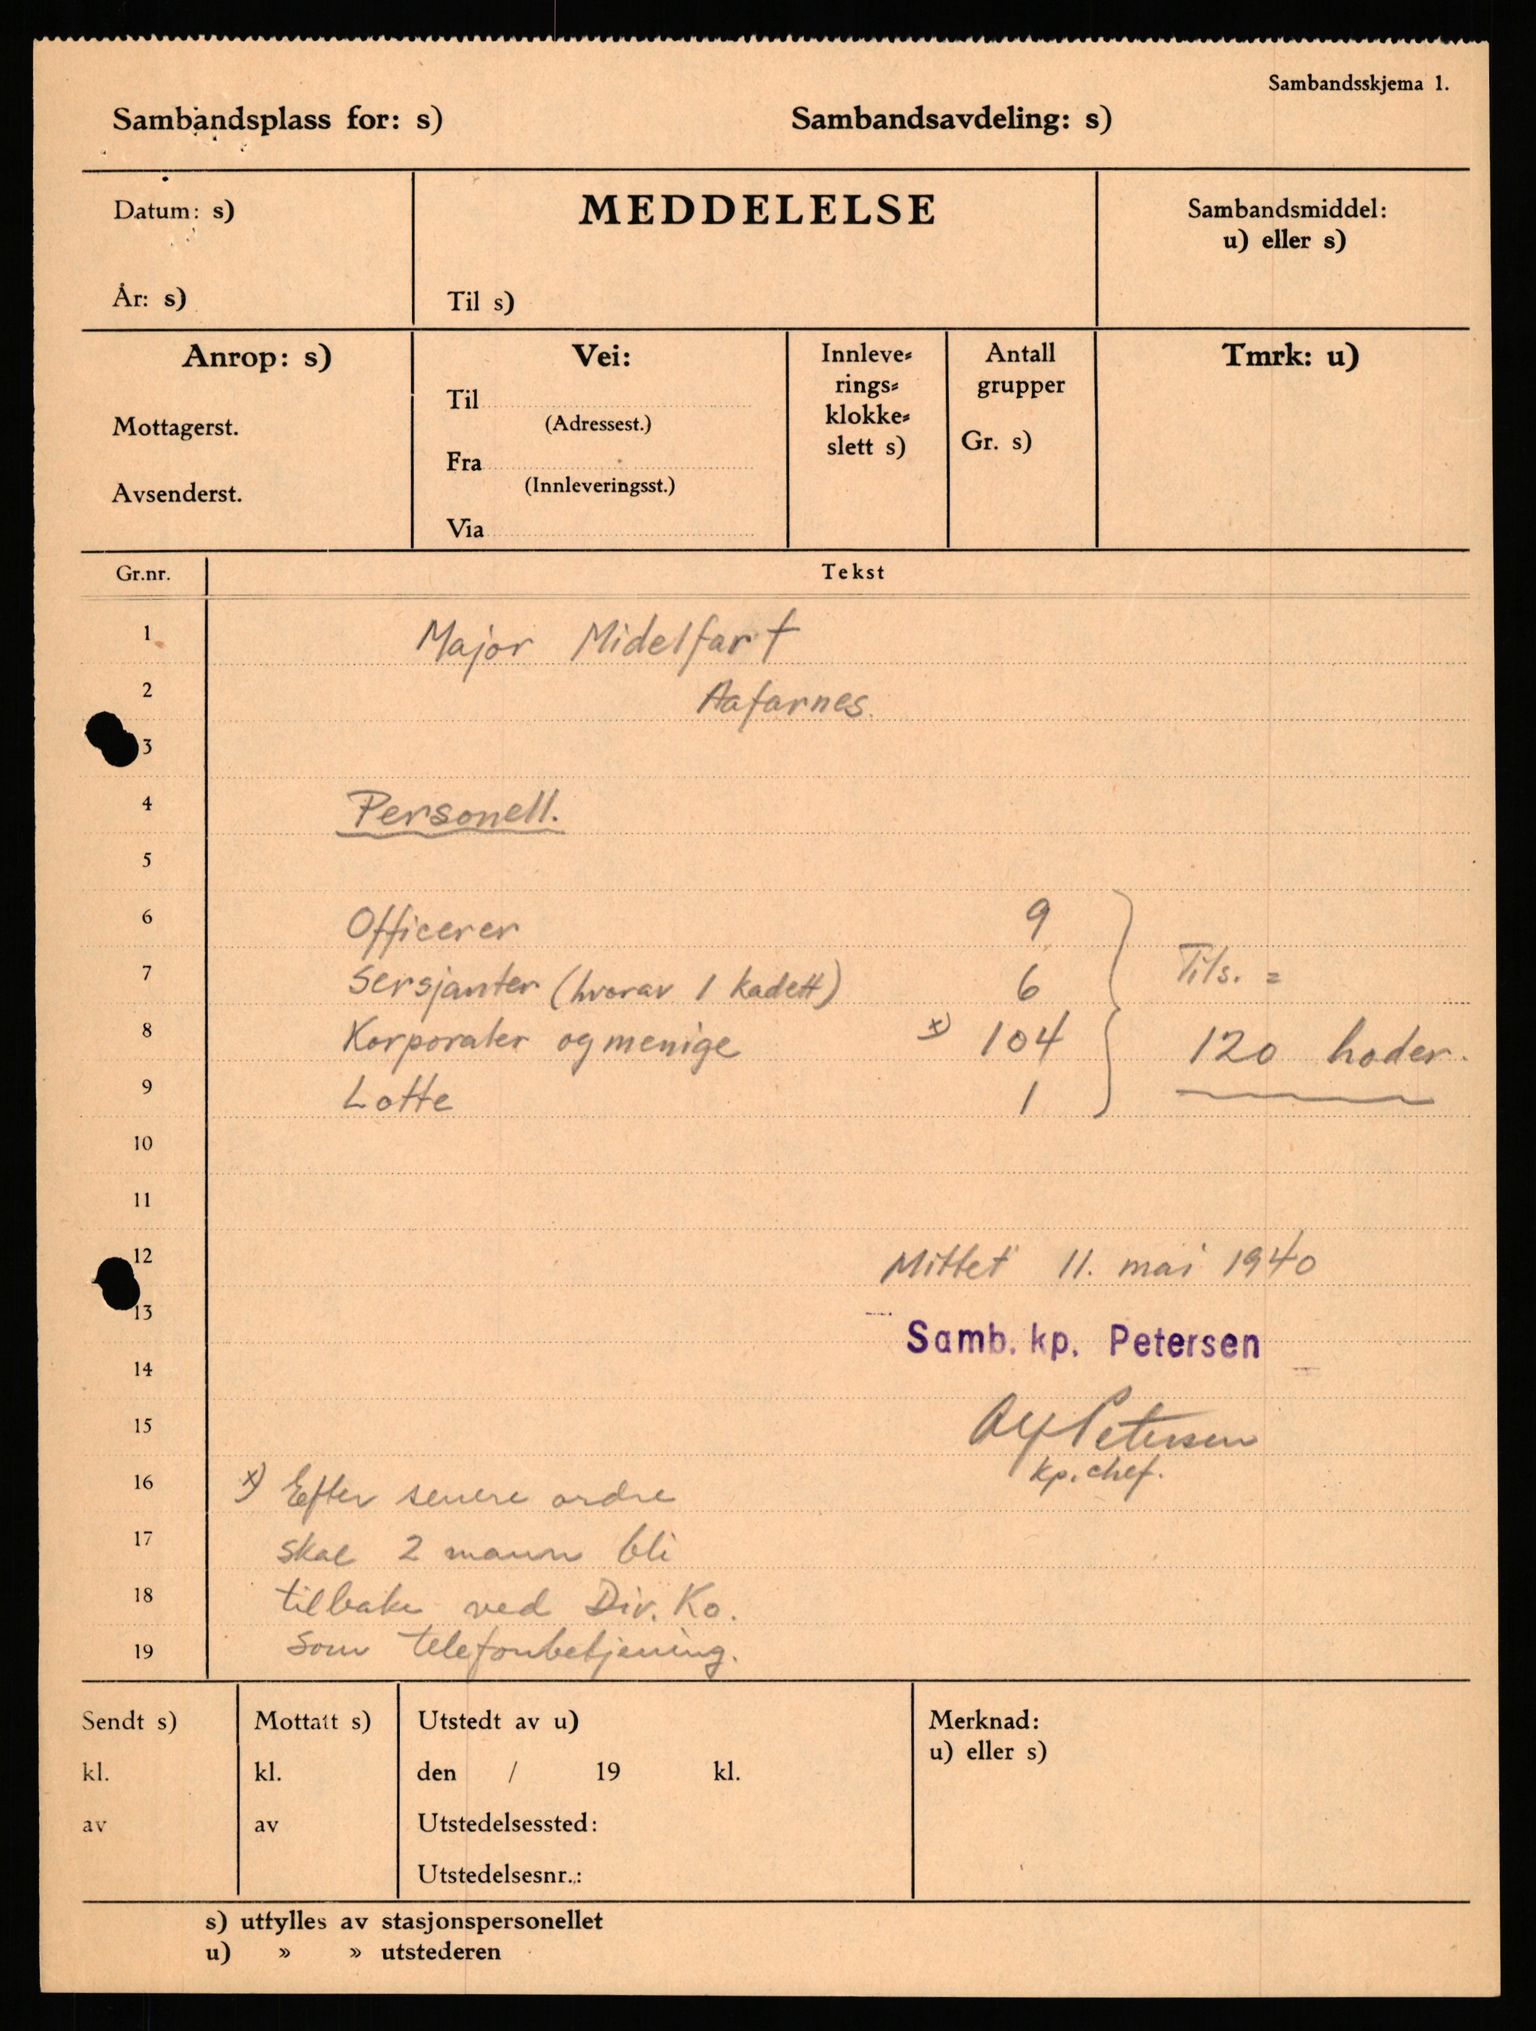 Sambandsskjema 1.
Sambandsplass for: s) Sambandsavdeling: s)
Datum: s)
År: s)
MEDDELELSE
Til s)
Sambandsmiddel:
u) eller s)
Anrop: s)
Mottagerst.
Avsenderst.
Vei:
Til
(Adressest.)
Fra
(Innleveringsst.)
Via
Innleve-
rings-
klokke-
slett s)
Antall
grupper
Gr. s)
Tmrk: u)
Gr.nr. Tekst
1 Major Midelfart
2 Aafarnes.
3
4 Personell.
5
6 Officerer 9
7 Sersjanter (hvorav 1 kadett) 6 Tils. =
8 Korporaler og menige x) 104 120 hoder.
9 Lotte 1
10
11
12 Mittet 11. mai 1940
13
Samb. kp. Petersen
14
15 Alf Petersen
kp. chef.
16 x) Efter senere ordre
17 skal 2 mann bli
18 tilbake ved Div. Ko.
19 som telefonbetjening.
Sendt s)
kl.
av
Mottatt s)
kl.
av
Utstedt av u)
den / 19 kl.
Utstedelsessted:
Utstedelsesnr.:
Merknad:
u) eller s)
s) utfylles av stasjonspersonellet
u) » » utstederen